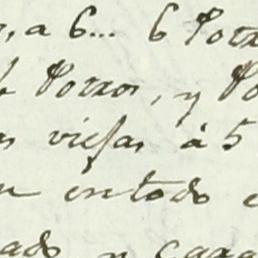 , a 6... 6 Potr
Potros, y Po
s viejas á 5
n entodo
ado y Cara